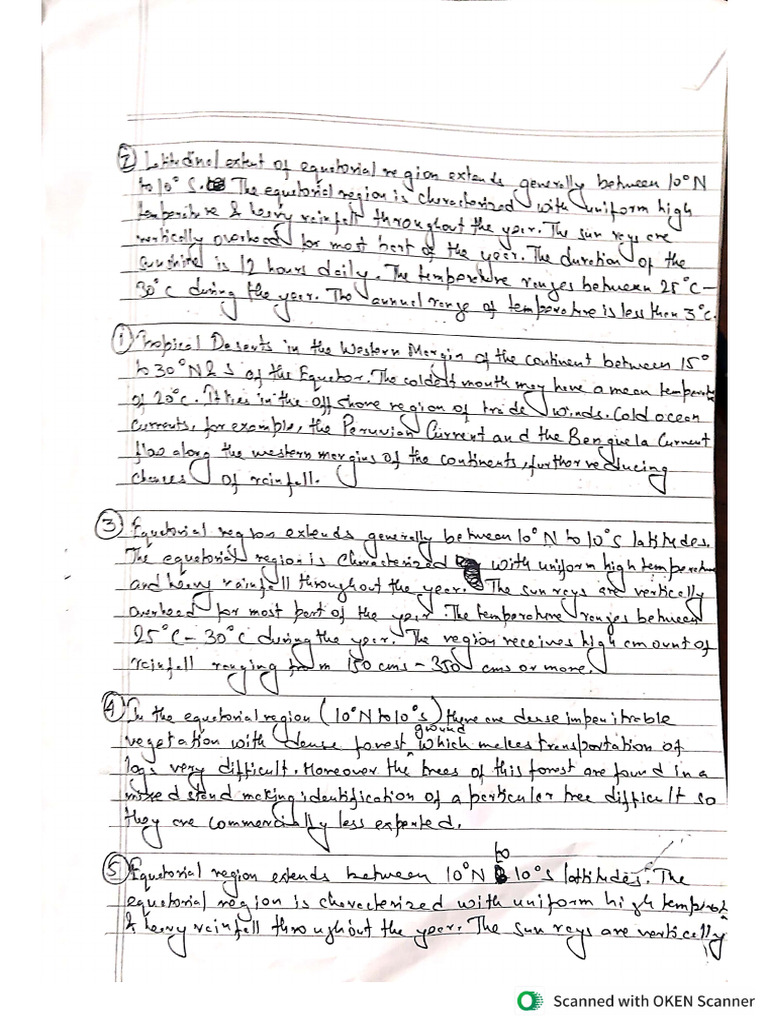 ② Latitudinal extent of equatorial region extends generally between 10°N
to 10° S. The equatorial region is characterized with uniform high
temperature & heavy rainfall throughout the year. The sun rays are
vertically overhead for most part of the year. The duration of the
sunshine is 12 hours daily. The temperature ranges between 25°C-
30°C during the year. The annual range of temperature is less then 3°C.
① Tropical Deserts in the Western Margin of the continent between 15°
to 30°N & S of the Equator. The coldest month may have a mean temperature
of 20°C. It lies in the off shore region of trade winds. Cold ocean
currents, for example, the Peruvian Current and the Benguela Current
flow along the western margins of the continents, further reducing
chances of rainfall.
③ Equatorial region extends generally between 10°N to 10°S latitudes.
The equatorial region is characterized with uniform high temperature
and heavy rainfall throughout the year. The sun rays are vertically
overhead for most part of the year The temperature ranges between
25°C - 30°C during the year. The region receives high amount of
rainfall ranging from 150 cms - 350 cms or more.
④ In the equatorial region (10°N to 10°S) there are dense impenitrable
vegetation with dense forest ground which makes transportation of
logs very difficult. Moreover the trees of this forest are found in a
mixed stand making identification of a particular tree difficult so
they are commercially less exported.
⑤ Equatorial region extends between 10°N to 10°S latitudes. The
equatorial region is characterized with uniform high temperat
& heavy rainfall throughout the year. The sun rays are vertically
Scanned with OKEN Scanner